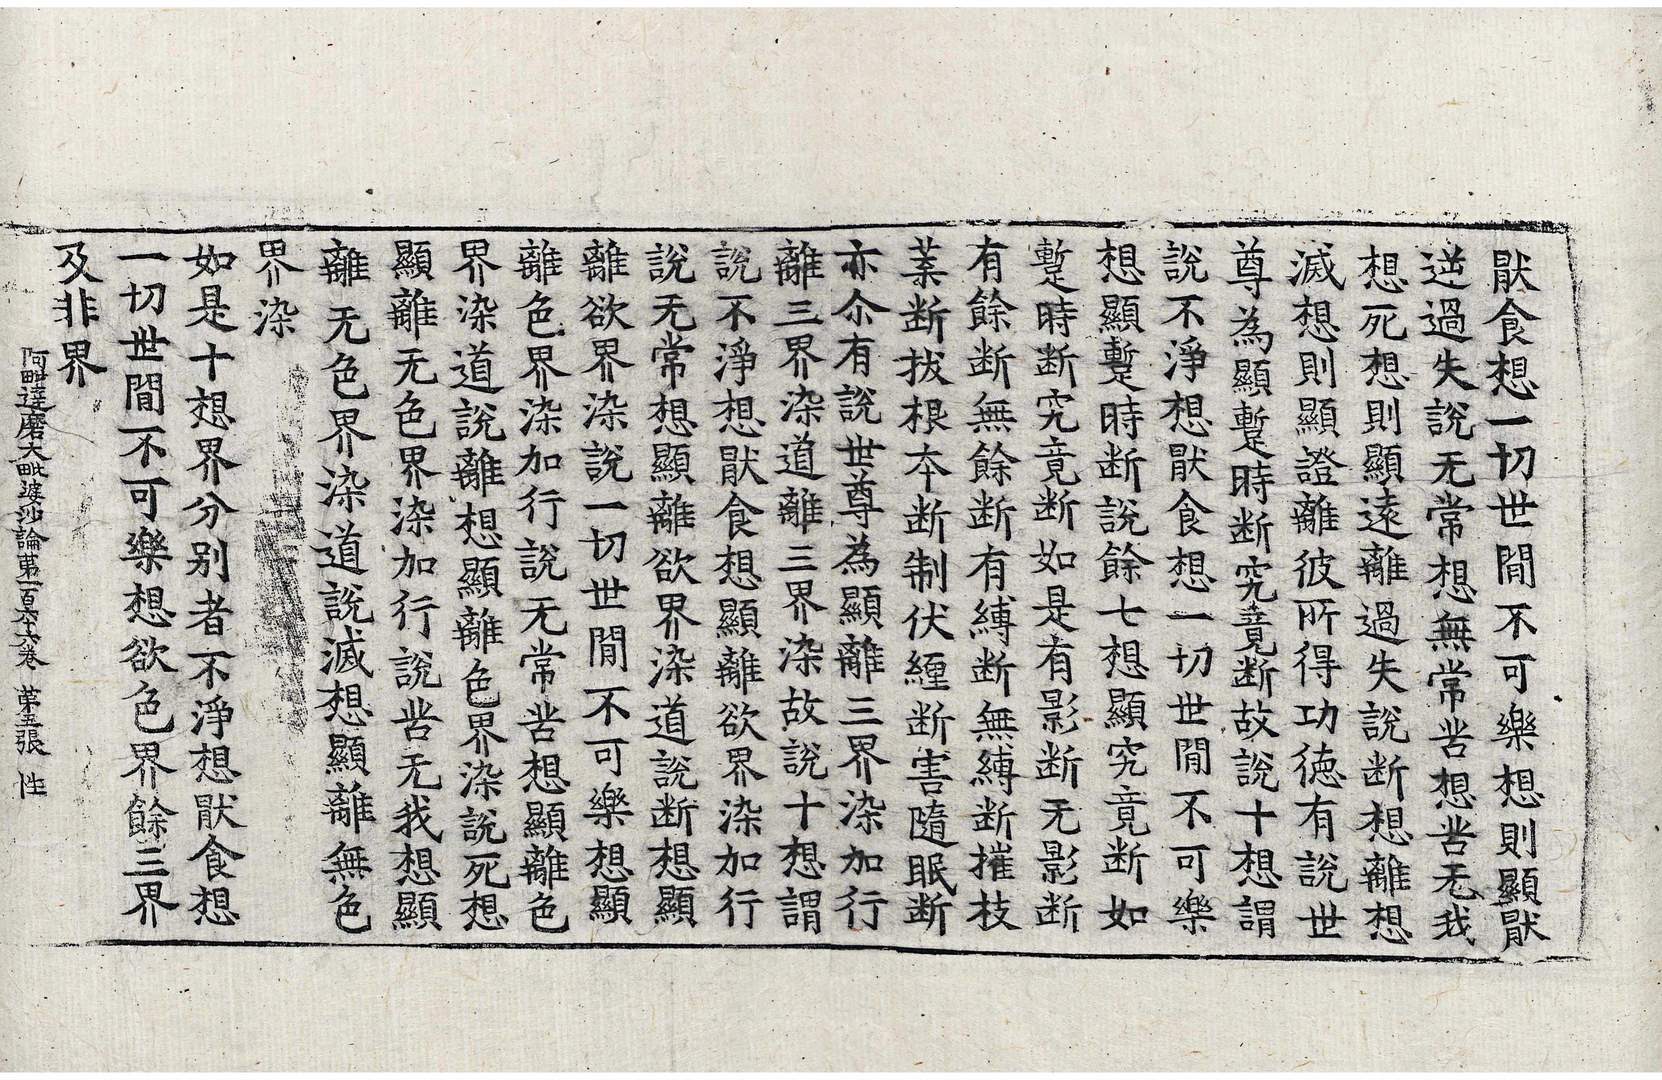 猒食想一切世間不可樂想則顯猒
逆過失說无常想無常苦想苦无我
想死想則顯遠離過失說断想離想
滅想則顯證離彼所得功德有說世
尊為顯蹔時断究竟断故說十想謂
說不淨想猒食想一切世間不可樂
想顯蹔時断說餘七想顯究竟断如
蹔時断究竟断如是有影断无影断
有餘断無餘断有縛断無縛断摧枝
葉断拔根本断制伏纏断害隨眠断
亦尒有說世尊為顯離三界染加行
離三界染道離三界染故說十想謂
說不淨想猒食想顯離欲界染加行
說无常想顯離欲界染道說断想顯
離欲界染說一切世間不可樂想顯
離色界染加行說无常苦想顯離色
界染道說離想顯離色界染說死想
顯離无色界染加行說苦无我想顯
離无色界染道說滅想顯離無色
界染
如是十想界分别者不淨想猒食想
一切世間不可樂想欲色界餘三界
及非界
阿毗達磨大毗婆沙論苐一百六十六卷 苐五張 性